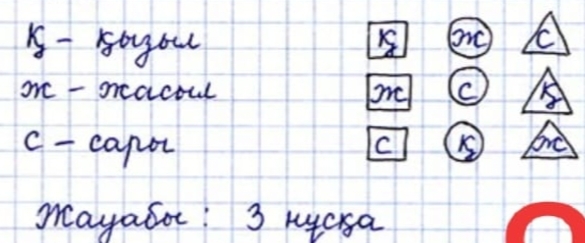 Қ - қызыл Қ Ж С
Ж - жасыл Ж С Қ
С - сары С Қ Ж
Жауабы : 3 нұсқа